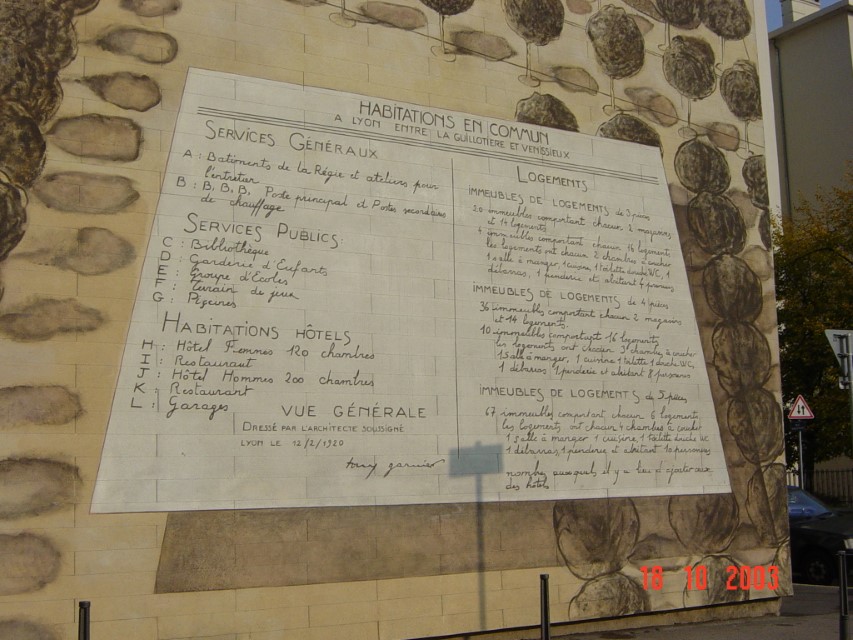 HABITATIONS EN COMMUN
A LYON ENTRE LA GUILLOTIÈRE ET VENISSIEUX
SERVICES GÉNÉRAUX
A: Batiments de la Régie et ateliers pour
l'entretien
B: B, B, B, Poste principal et Postes secondaires
de chauffage
SERVICES PUBLICS:
C: Bibliothèque
D: Garderie d'Enfants
E: Groupe d'Ecoles
F: Terrain de jeux
G: Piscines
HABITATIONS HÔTELS
H: Hôtel Femmes 120 chambres
I: Restaurant
J: Hôtel Hommes 200 chambres
K: Restaurant
L: Garages
VUE GÉNÉRALE
DRESSÉ PAR L'ARCHITECTE SOUSSIGNÉ
LYON LE 12/2/1920
tony garnier
LOGEMENTS
IMMEUBLES DE LOGEMENTS de 3 pièces
20 immeubles comportant chacun 2 magasins
et 14 logements
4 immeubles comportant chacun 16 logements
les logements ont chacun 2 chambres à coucher
1 salle à manger, 1 cuisine, 1 toilette douche WC, 1
débarras, 1 penderie et abritent 6 personnes
IMMEUBLES DE LOGEMENTS de 4 pièces
36 immeubles comportant chacun 2 magasins
et 14 logements
10 immeubles comportant 16 logements
les logements ont chacun 3 chambres à coucher
1 salle à manger, 1 cuisine 1 toilette 1 douche WC,
1 débarras, 1 penderie et abritent 8 personnes
IMMEUBLES DE LOGEMENTS de 5 pièces
67 immeubles comportant chacun 6 logements,
les logements ont chacun 4 chambres à coucher
1 salle à manger 1 cuisine, 1 toilette douche WC
1 débarras, 1 penderie et abritent 10 personnes
nombres auxquels il y a lieu d'ajouter ceux
des hôtels
18 10 2003